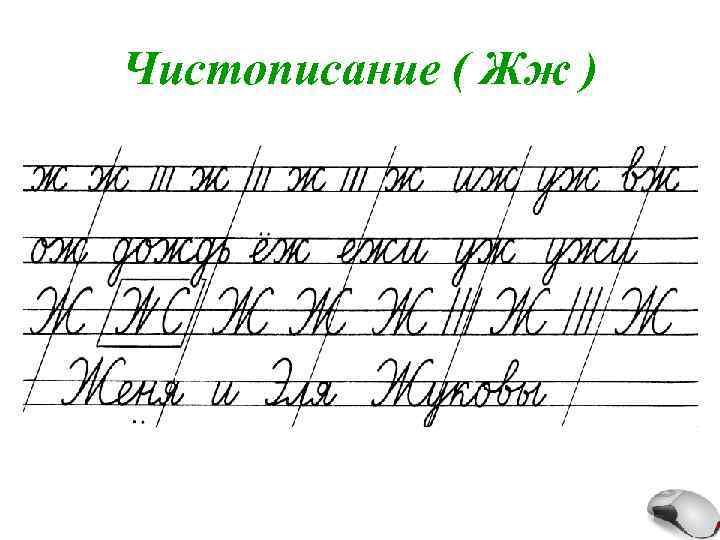 Чистописание ( Жж )
ж ж ж ж ж иж уж вж
ож дождь ёж ежи уж ужи
Ж Ж Ж Ж Ж Ж Ж
Женя и Эля Жуковы